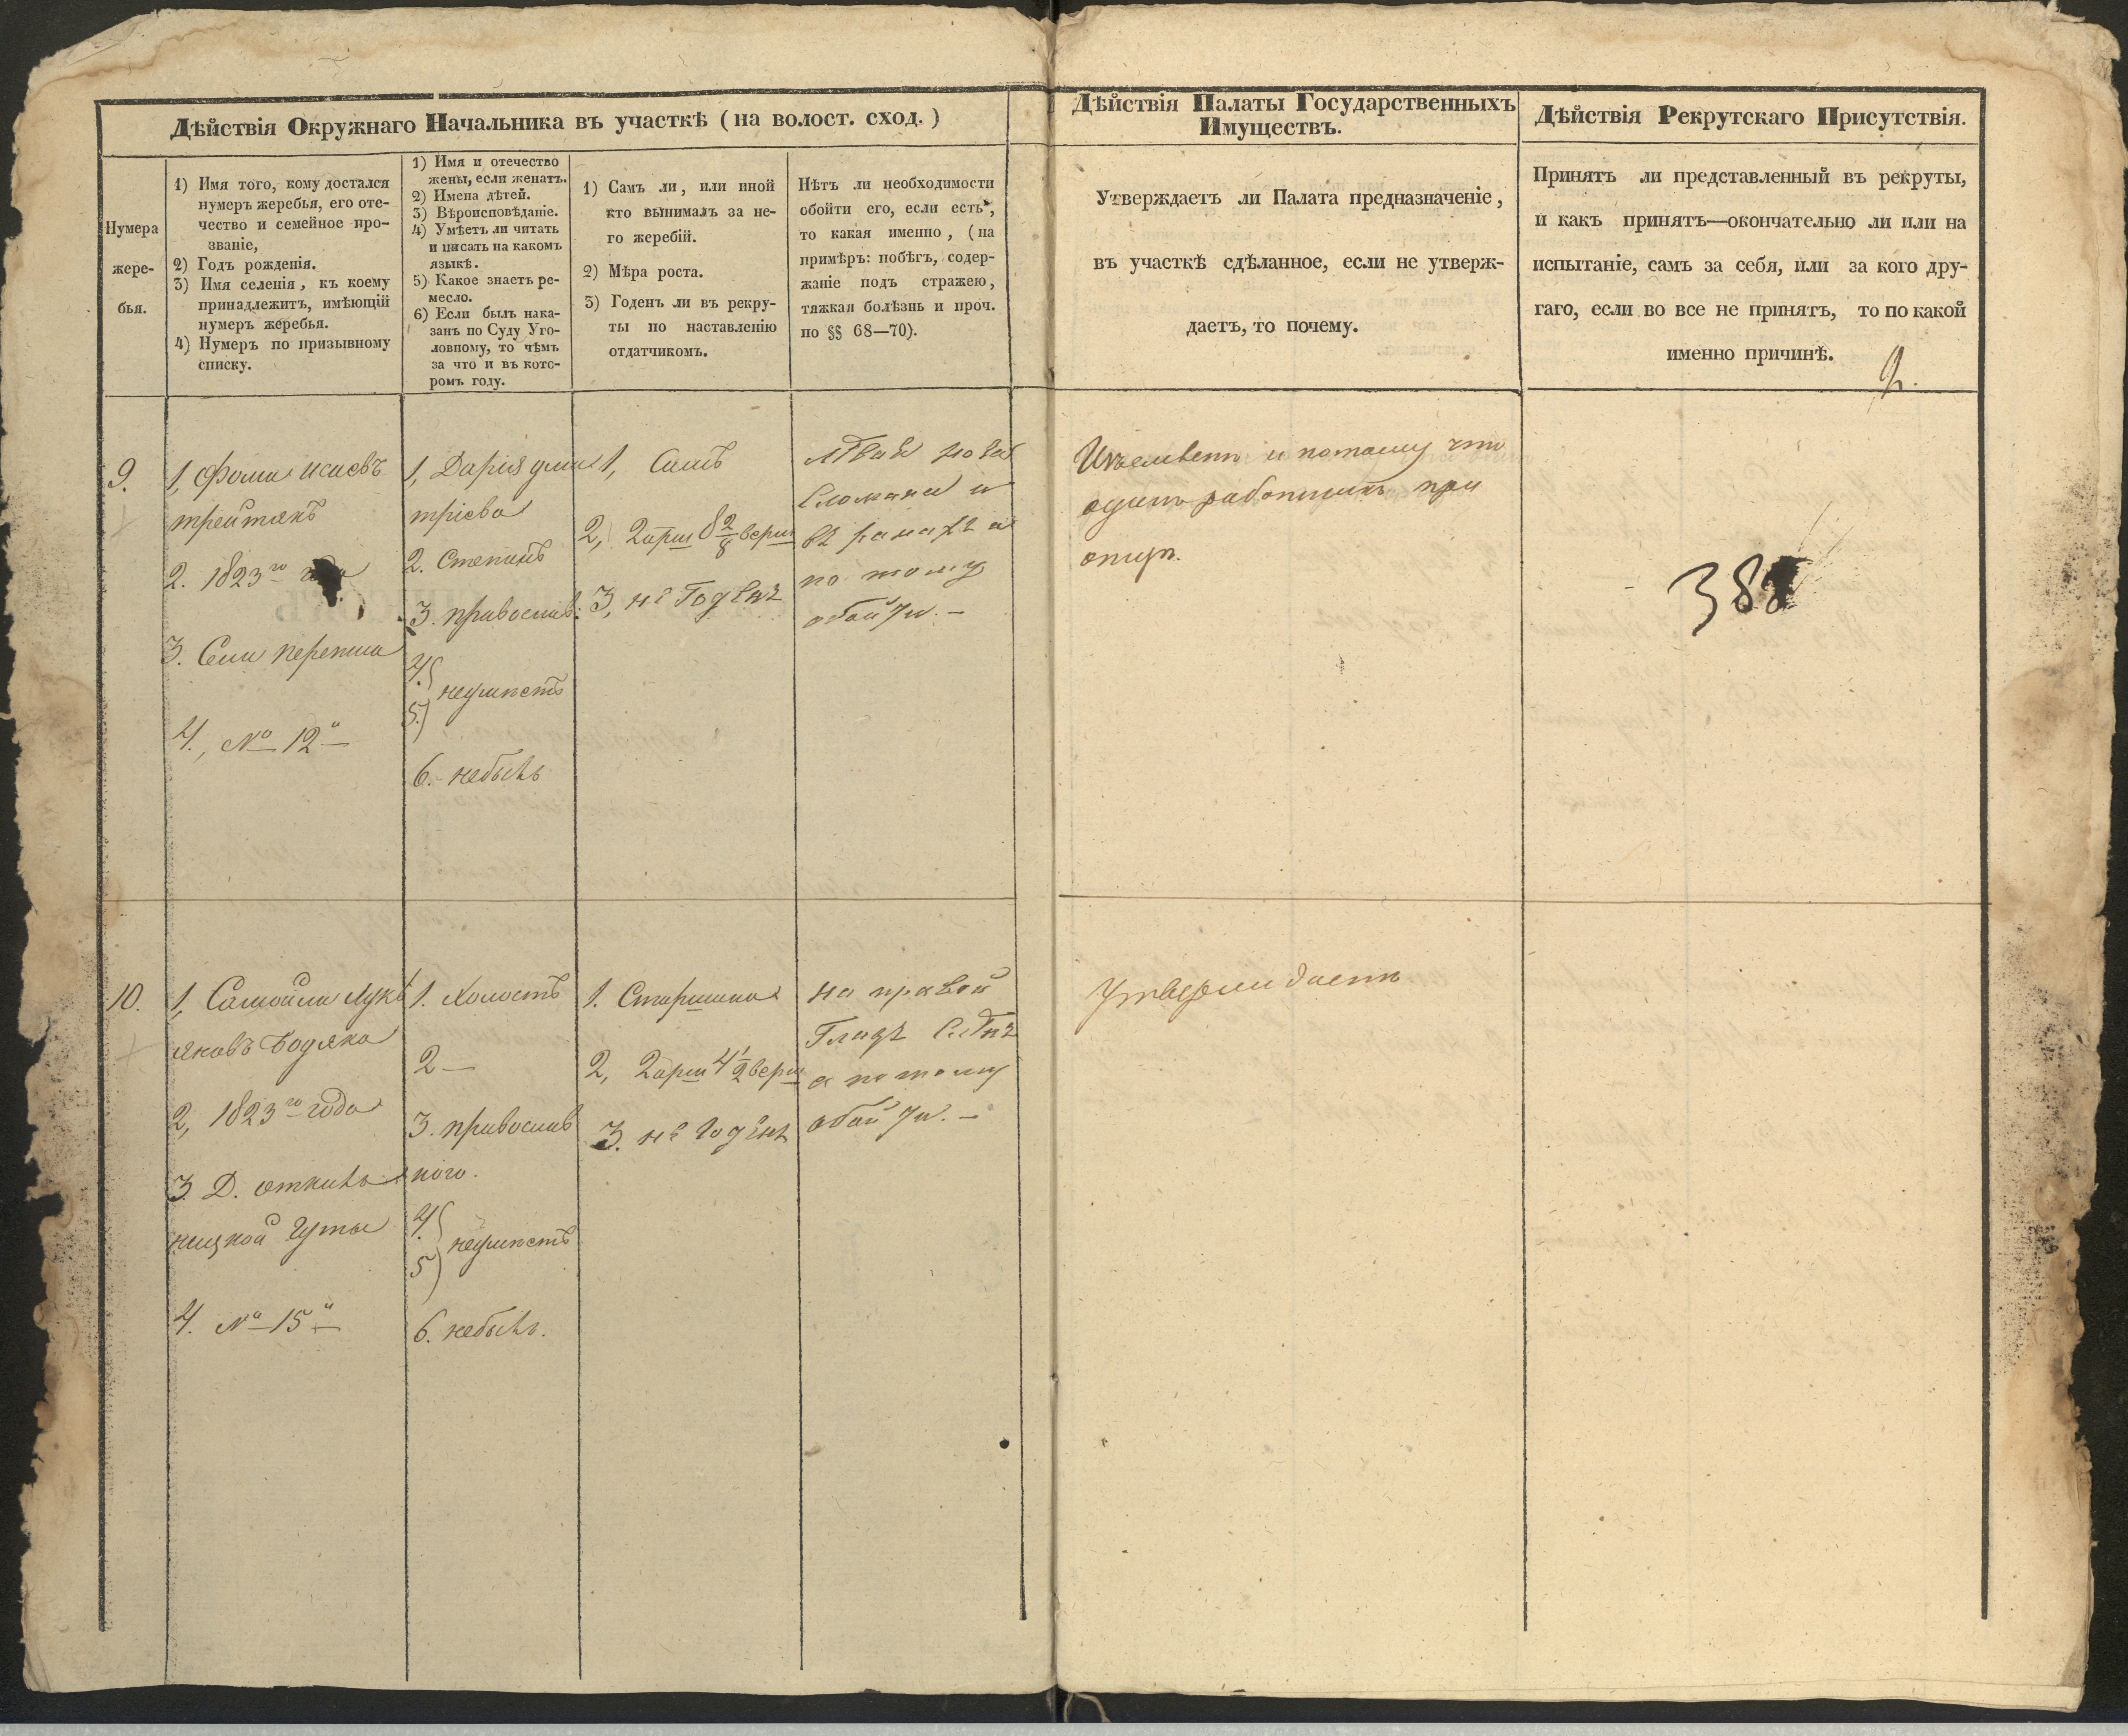 Дѣйствія Окружнаго Начальника въ участкѣ (на волост. сход.)
Нумера
жере-
бья.
1) Имя того, кому достался
нумеръ жеребья, его оте-
чество и семейное про-
званіе,
2) Годъ рожденія.
3) Имя селенія, къ коему
принадлежитъ, имѣющій
нумеръ жеребья.
4) Нумеръ по призывному
списку.
1) Имя и отечество
жены, если женатъ.
2) Имена дѣтей.
3) Вѣроисповѣданіе.
4) Умѣетъ ли читать
и писать на какомъ
языкѣ.
5) Какое знаетъ ре-
месло.
6) Если былъ нака-
занъ по Суду Уго-
ловному, то чѣмъ
за что и въ кото-
ромъ году.
1) Самъ ли, или иной
кто вынималъ за не-
го жеребій.
2) Мѣра роста.
3) Годенъ ли въ рекру-
ты по наставленію
отдатчикомъ.
Нѣтъ ли необходимости
обойти его, если есть,
то какая именно, (на
примѣръ: побѣгъ, содер-
жаніе подъ стражею,
тяжкая болѣзнь и проч.
по §§ 68—70).
Дѣйствія Палаты Государственныхъ
Имуществъ.
Утверждаетъ ли Палата предназначеніе,
въ участкѣ сдѣланное, если не утверж-
даетъ, то почему.
Дѣйствія Рекрутскаго Присутствія.
Принятъ ли представленный въ рекруты,
и какъ принятъ—окончательно ли или на
испытаніе, самъ за себя, или за кого дру-
гаго, если во все не принятъ, то по какой
именно причинѣ.
9.
1, Фома Исаевъ
трейтякъ
2. 1823го года
3. Села перепила
4., № 12й
1, Дарія дми
тріева
2. Степанъ
3. православ:
4.
5.) неумѣетъ
6. небылъ
1, Самъ
2, 2 арш 8 2/8 верш
3, не Годенъ
лѣвая нога
сломана и
въ ранахъ а
по тому
обойти. —
и потому что
одинъ работникъ при
отцѣ.
10.
1, Самойла Лукь
яновъ Бодяко
2, 1823го года
3. Д.
ницкой Гуты
4. № 15й
1. Холостъ
2 —
3. православ
ного.
4.
5) неумѣетъ
6. небылъ.
1. Старшина
2, 2 арш 4 1/2 верш
3. не Годенъ
на правой
Глазъ слѣпъ
а по тому
обойти. —
Утверждаетъ